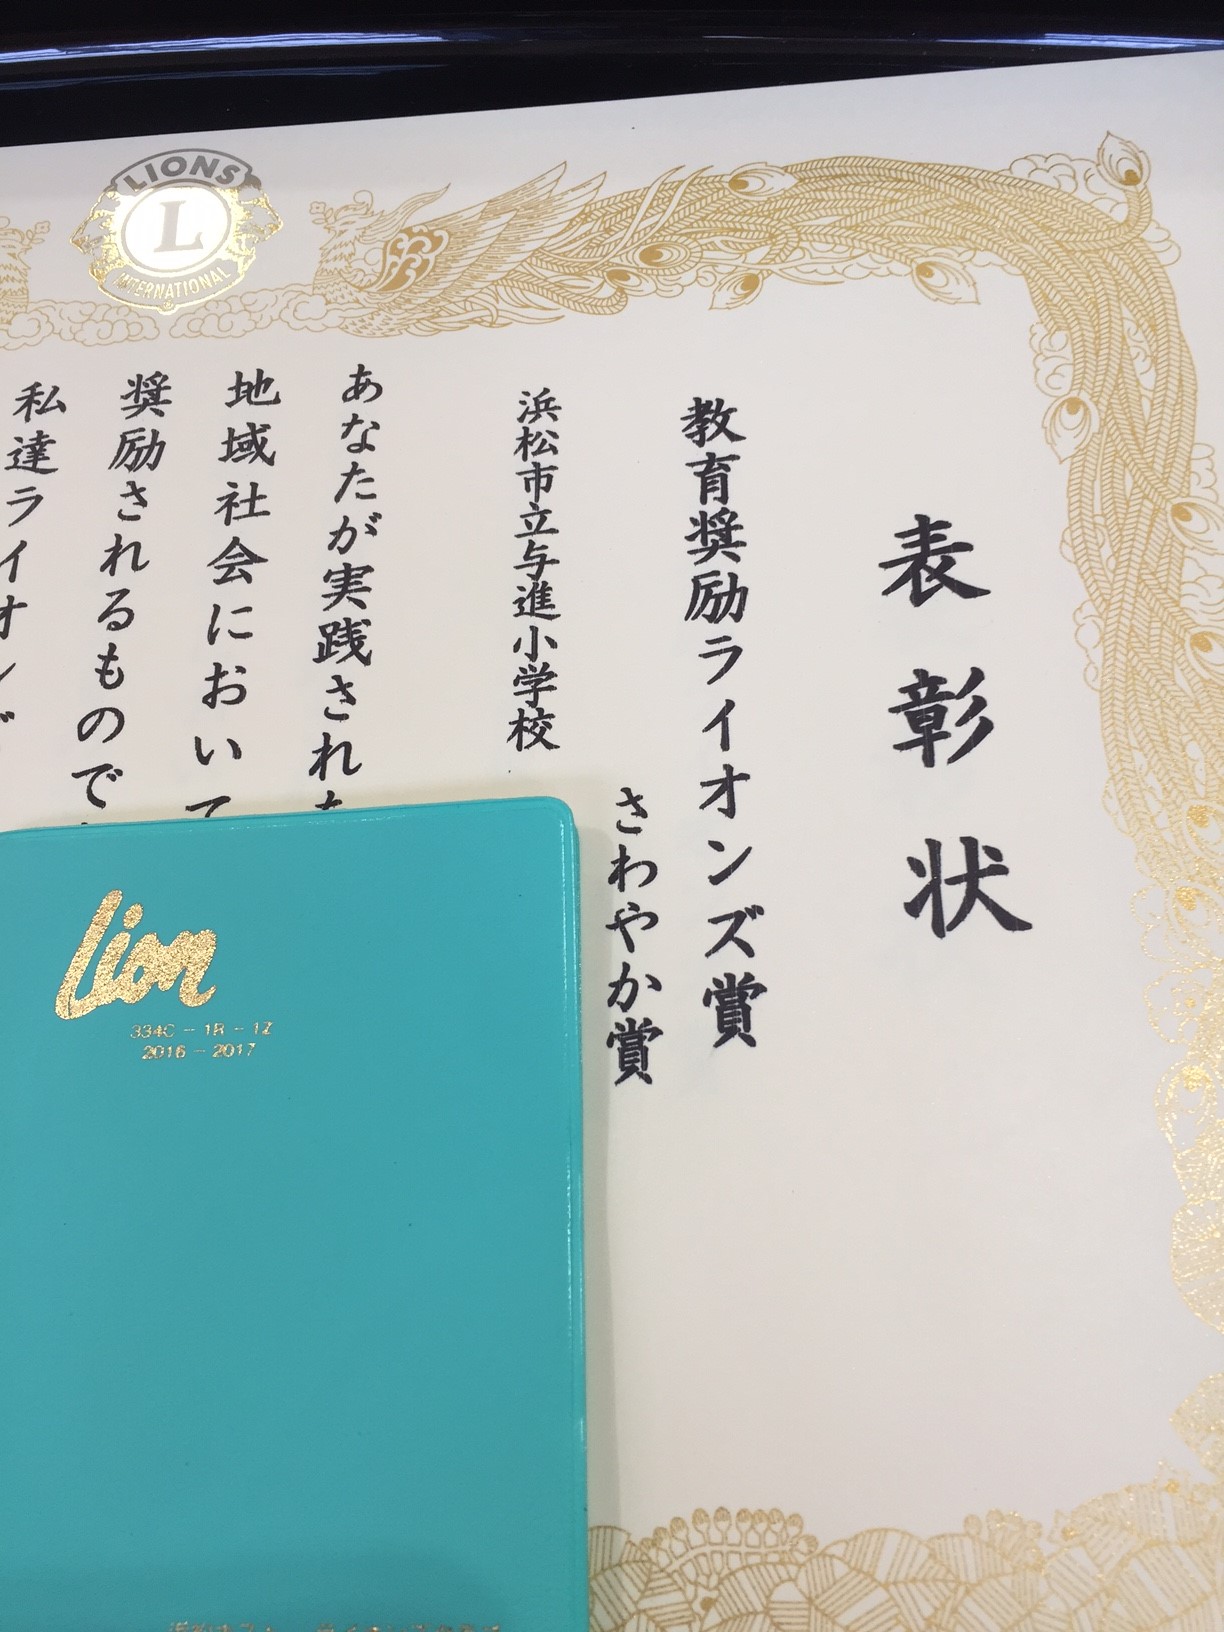 LIONS
L
INTERNATIONAL
表彰状
教育奨励ライオンズ賞
さわやか賞
浜松市立与進小学校
あなたが実践された
地域社会において
奨励されるもので
私達ライオンズ
Lion
334C-1R-1Z
2016-2017